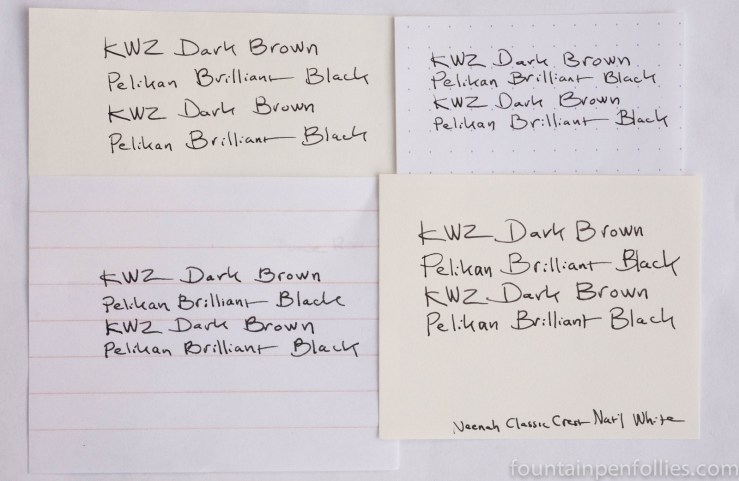 KWZ Dark Brown
Pelikan Brilliant Black
KWZ Dark Brown
Pelikan Brilliant Black
KWZ Dark Brown
Pelikan Brilliant Black
KWZ Dark Brown
Pelikan Brilliant Black
KWZ Dark Brown
Pelikan Brilliant Black
KWZ Dark Brown
Pelikan Brilliant Black
KWZ Dark Brown
Pelikan Brilliant Black
KWZ Dark Brown
Pelikan Brilliant Black
Neenah Classic Crest Nat'l White
fountainpenfollies.com